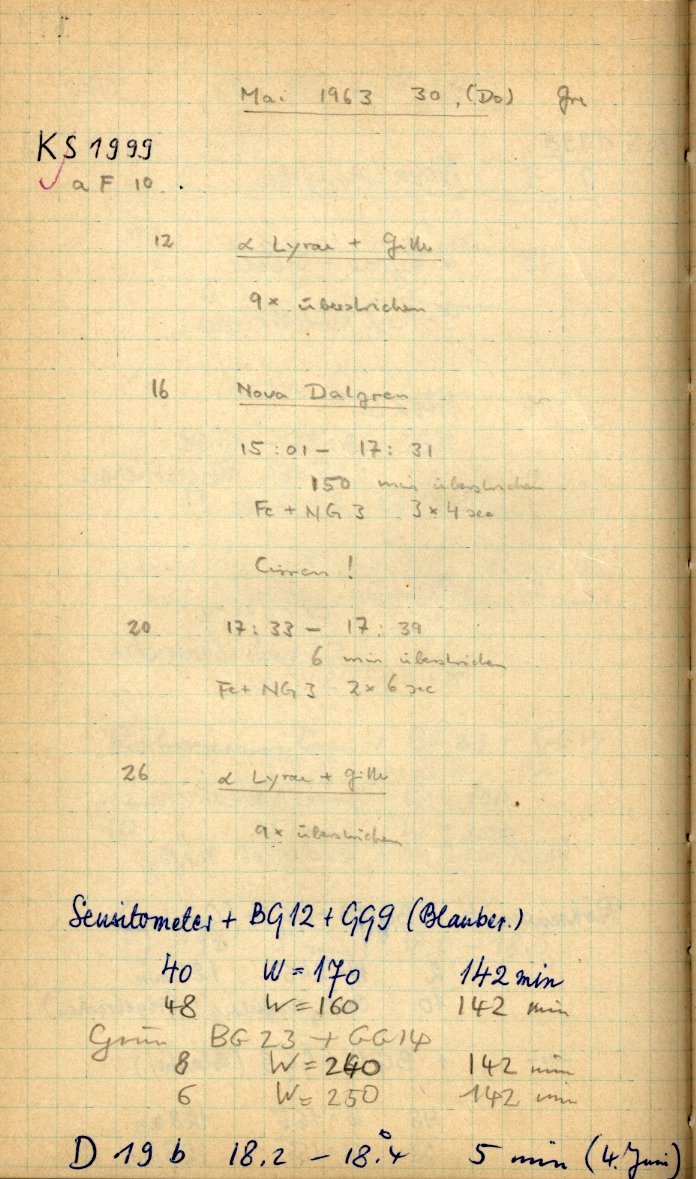 Mai 1963 30. (Do) Gre
KS 1999
a F 10 .
12 α Lyrae + Gitter
9x überstrichen
16 Nova Dalgren
15:01 - 17:31
150 min überstrichen
Fe + NG 3 3 x 4 sec
Cirren!
20 17:33 - 17:39
6 min überstrichen
Fe + NG 3 2 x 6 sec
26 α Lyrae + Gitter
9x überstrichen
Sensitometer + BG12 + GG9 (Blauber.)
40 W = 170 142 min
48 W = 160 142 min
Grün BG 23 + GG14
8 W = 240 142 min
6 W = 250 142 min
D 19 b 18.2 - 18.°4 5 min (4. Juni)